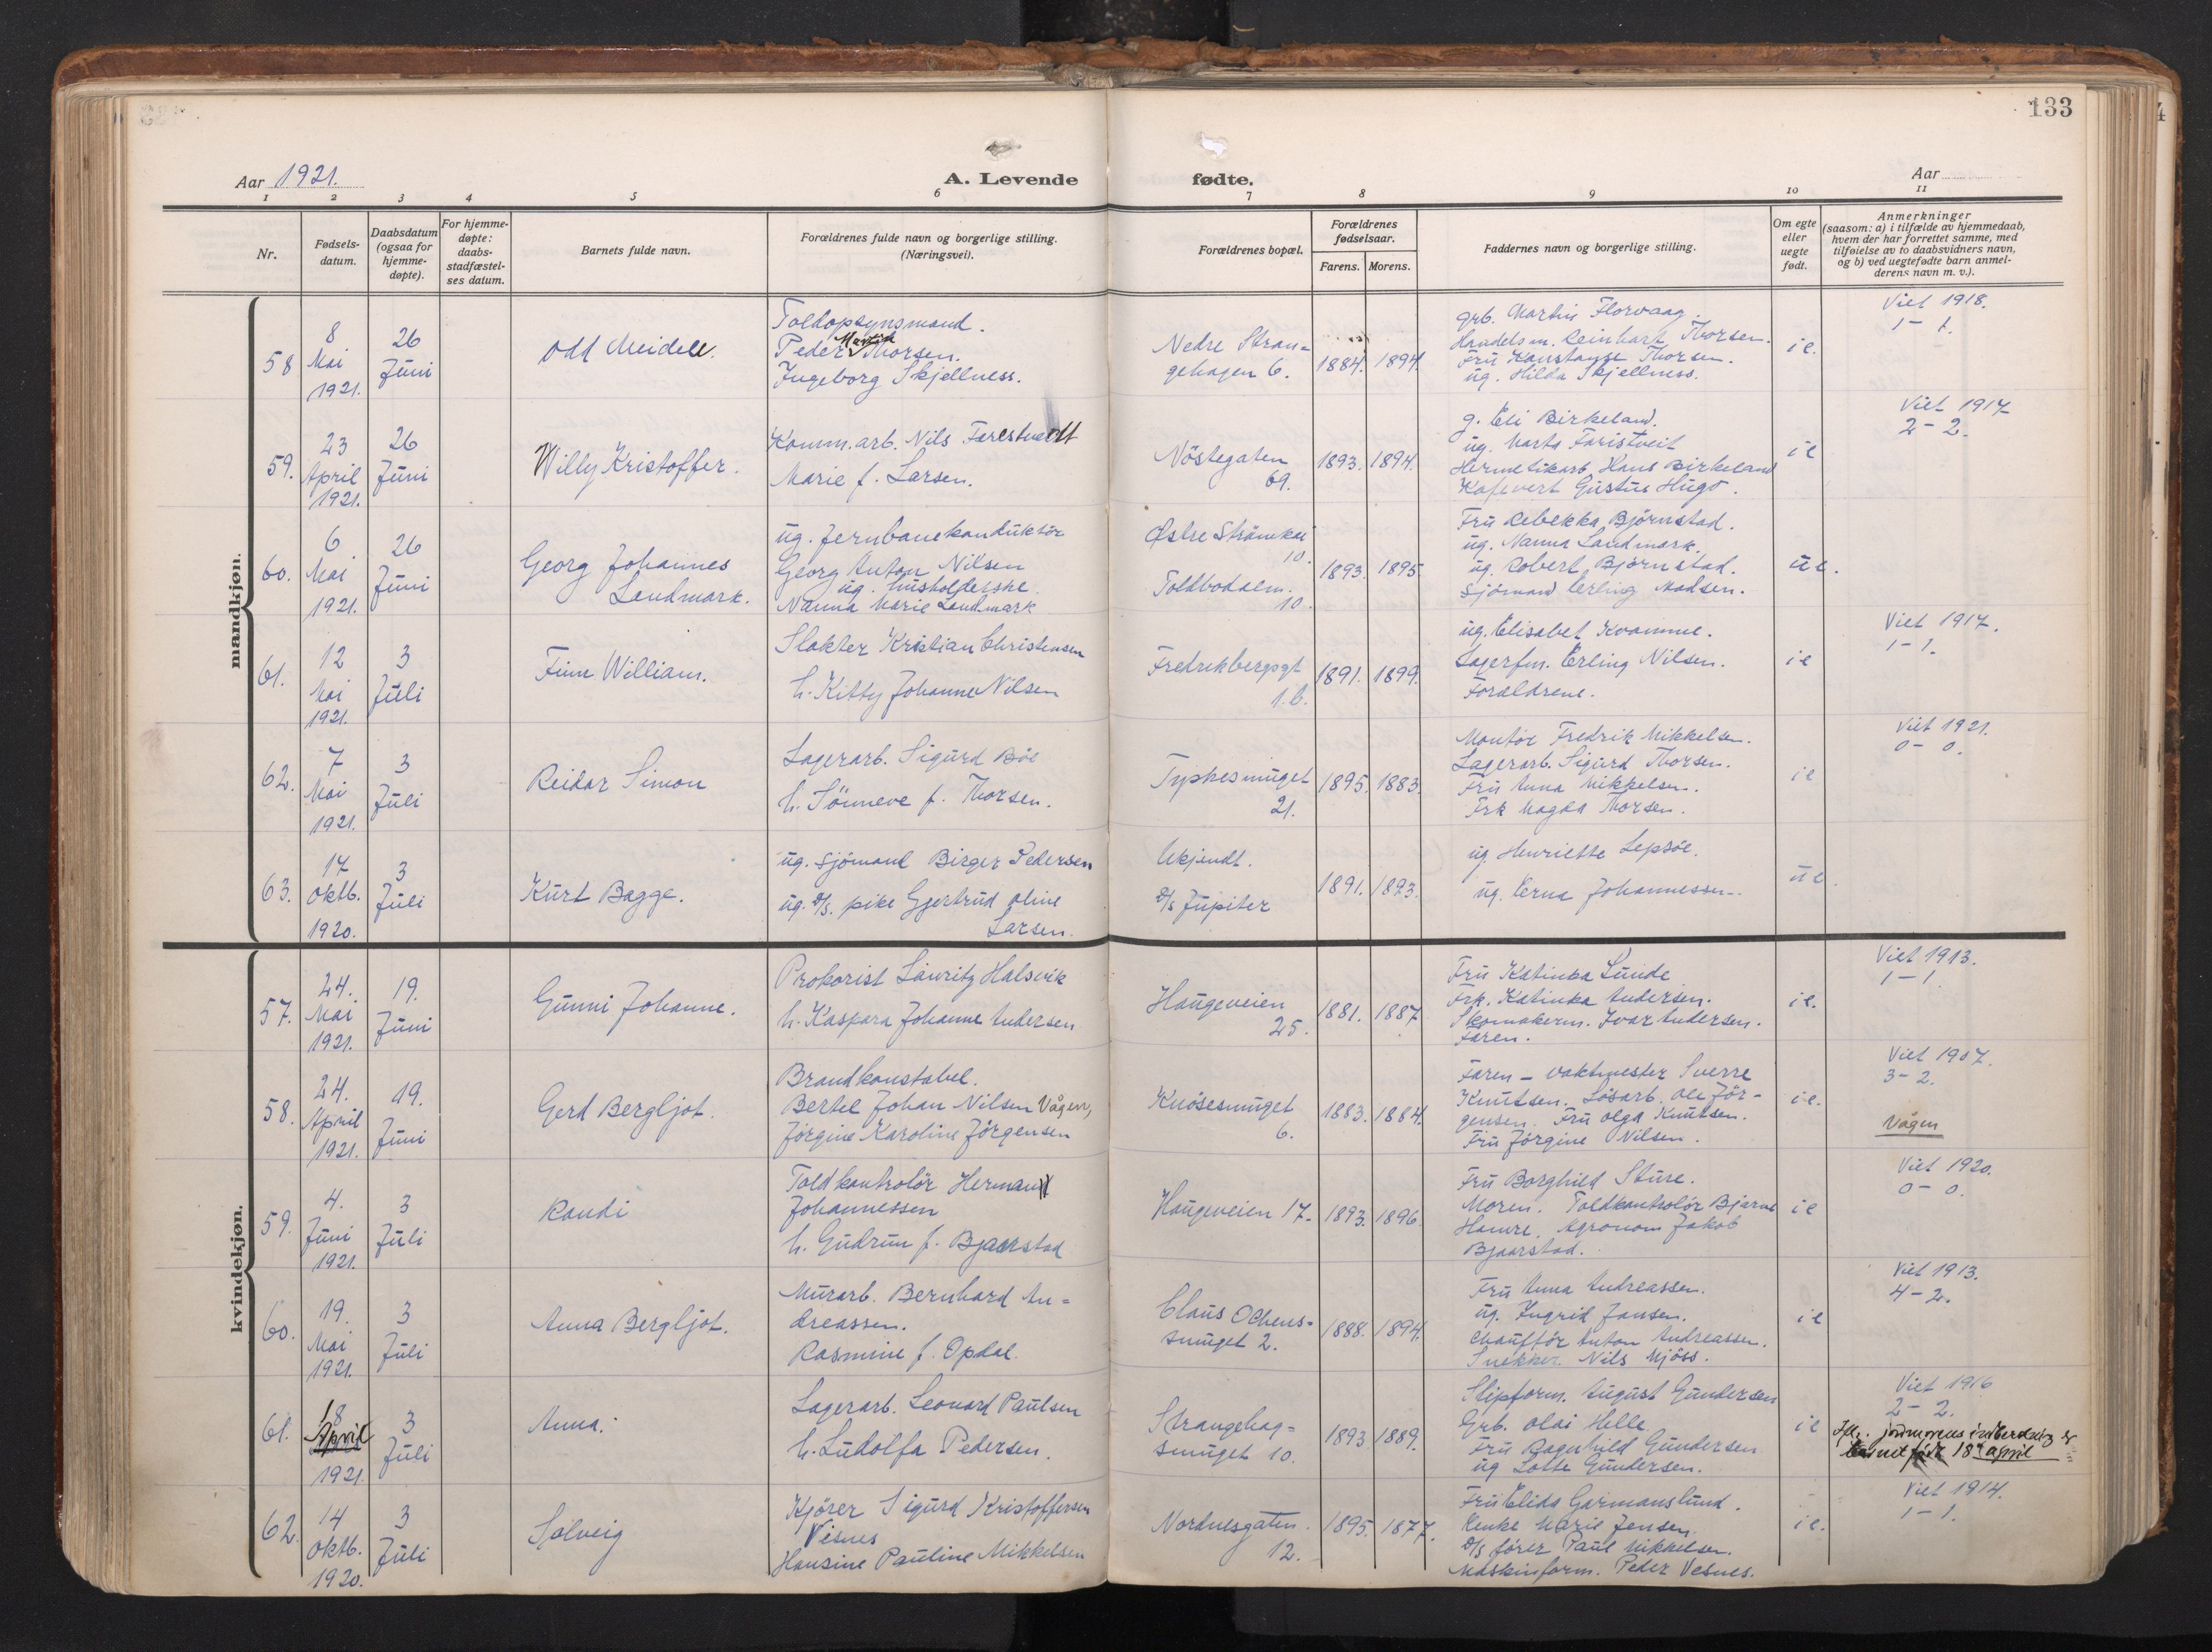 133
Aar 1921.
A. Levende fødte.
Aar
1 2 3 4 5 6 7 8 9 10 11
Nr.
Fødsels-
datum.
Daabsdatum
(ogsaa for
hjemme-
døpte).
For hjemme-
døpte:
daabs-
stadfæstel-
ses datum.
Barnets fulde navn.
Forældrenes fulde navn og borgerlige stilling.
(Næringsvei).
Forældrenes bopæl.
Forældrenes
fødselsaar.
Farens. Morens.
Faddernes navn og borgerlige stilling.
Om egte
eller
uegte
født.
Anmerkninger
(saasom: a) i tilfælde av hjemmedaab,
hvem der har forrettet samme, med
tilføielse av to daabsvidners navn,
og b) ved uegtefødte barn anmel-
derens navn m. v.).
mandkjøn.
58
8
Mai
1921.
26
Juni
Odd Meidell.
Toldopsynsmand.
Peder Thorsen.
Ingeborg Skjellness.
Nedre Stran=
gehagen 6.
1884. 1894.
grb. Martin Florvaag.
Handelsm. Reinhart Thorsen.
Fru Konstanse Thorsen.
ug. Hilda Skjellness.
ie.
Viet 1918.
1-1.
59.
23
April
1921.
26
Juni
Willy Kristoffer.
Komm.arb. Nils Farestvedt
Marie f. Larsen.
Nöstegaten
69.
1893. 1894.
g. Eli Birkeland.
ug. Marta Faristveit
Hermetikarb. Hans Birkeland
Kafevert Gustus Hugo.
ie
Viet 1917
2-2.
60.
6
Mai
1921.
26
Juni
Georg Johannes
Landmark.
ug. Jernbanekonduktör
Georg Anton Nilsen
ug. husholderske
Nanna Marie Landmark
Østre Strömkai
10.
Toldbodalm.
10.
1893. 1895
Fru Rebekka Björnstad.
ug. Nanna Landmark.
ug. Robert Björnstad.
Sjömand Erling Madsen.
ue.
61.
12
Mai
1921.
3
Juli
Finn William.
Slakter Kristian Christensen
h. Kitty Johanne Nilsen
Fredrikbergsgt
1.b.
1891. 1899.
ug. Elisabet Kvamme.
Lagerfm. Erling Nilsen.
Forældrene.
ie
Viet 1917.
1-1.
62.
7
Mai
1921.
3
Juli
Reidar Simon
Lagerarb. Sigurd Böe
h. Sönneve f. Thorsen.
Typkesmuget
21.
1895. 1883.
Montör Fredrik Mikkelsen.
Lagerarb. Sigurd Thorsen.
Fru Anna Mikkelsen.
Frk Magda Thorsen.
ie
Viet 1921.
0-0.
63.
17
Oktb.
1920.
3
Juli
Kurt Bagge.
ug. Sjömand Birger Pedersen
ug. D/S. pike Gjertrud Oline
Larsen.
Ukjendt.
D/S Jupiter
1891. 1893.
ug. Henriette Lepsöe.
ug. Erna Johannessen.
ue.
kvindekjøn.
57.
24.
Mai
1921.
19.
Juni
Gunni Johanne.
Prokorist Lauritz Halsvik
h. Kaspara Johanne Andersen
Haugeveien
25.
1881. 1887
Fru Katinka Lunde
Frk. Katinka Andersen.
Skomakerm. Ivar Andersen.
Faren.
ie.
Viet 1913.
1-1
58.
24.
April
1921.
19.
Juni
Gerd Bergljot.
Brandkonstabel.
Bertel Johan Nilsen Vågen,
Jörgine Karoline Jörgensen
Knösesmuget
6.
1883. 1884.
Faren - Vaktmester Sverre
Knutsen. Lösarb. Ole Jör-
gensen. Fru Olga Knutsen.
Fru Jörgine Nilsen.
ie.
Viet 1907.
3-2.
Vågen
59.
4.
Juni
1921.
3
Juli
Randi
Toldkontrolör Herman
Johannessen
h. Gudrun f. Bjaarstad
Haugeveien 17.
1893. 1896.
Fru Borghild Sture.
Moren. Toldkontrolör Bjarne
Hamre. Agronom Jakob
Bjaarstad.
ie
Viet 1920.
0-0.
60.
19.
Mai
1921.
3
Juli
Anna Bergljot.
Murarb. Bernhard An=
dreassen.
Rasmine f. Opdal.
Claus Ockens=
smuget 2.
1888. 1894.
Fru Anna Andreassen.
ug. Ingrid Jansen.
Chaufför Anton Andreassen.
Snekker Nils Mjöss.
ie
Viet 1913.
4-2.
61.
18
April
1921.
3
Juli
Anna.
Lagerarb. Leonard Paulsen
h. Ludolfa Pedersen.
Strangehag=
smuget 10.
1893. 1889.
Slipform. August Gundersen
Grb. Olai Helle.
Fru Ragnhild Gundersen
ug Lotte Gundersen.
ie
Viet 1916
2-2.
Iflg. jordmorens indberetning er
barnet født 18de april
62.
14
Oktb.
1920.
3
Juli
Solveig
Kjörer Sigurd Kristoffersen
Vesnes
Hansine Pauline Mikkelsen
Nordnesgaten.
12.
1895. 1877.
Fru Elida Garmanslund.
Enke Marie Jensen.
D/S förer Paul Mikkelsen.
Maskinform. Peder Vesnes.
ie.
Viet 1914.
1-1.